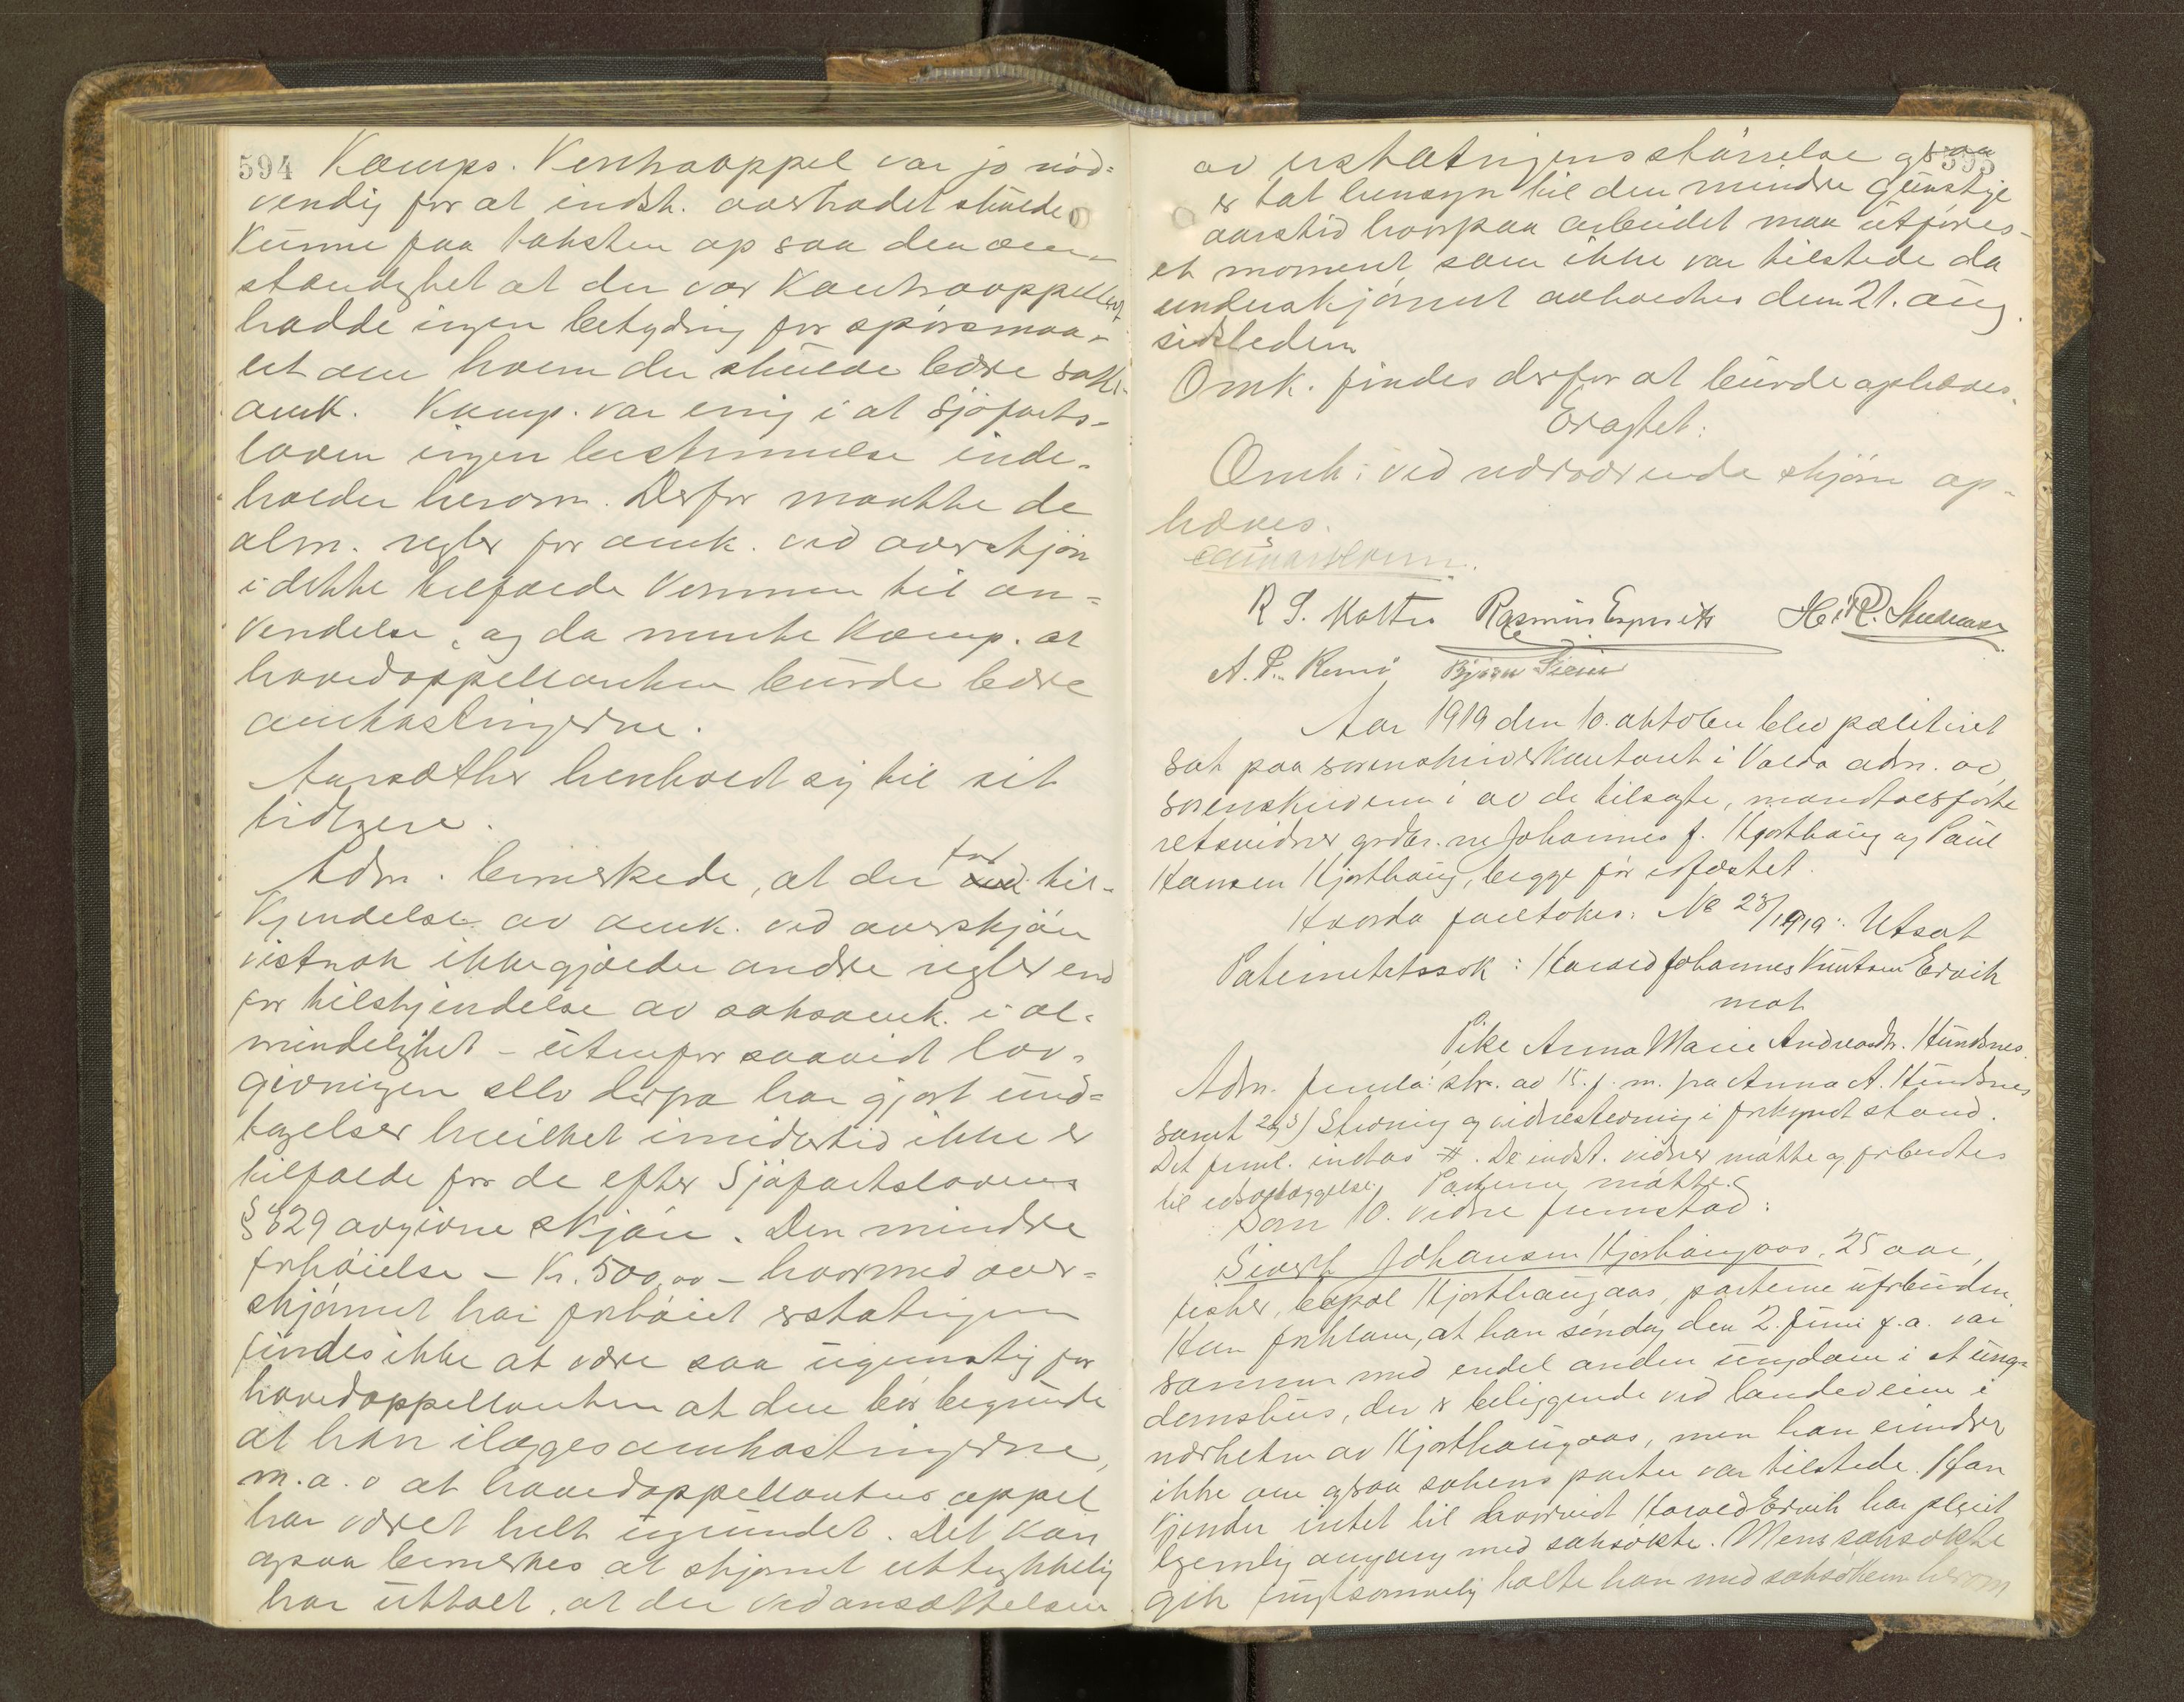 594
Kamps. Kontraappel var jo nød-
vendig for at indst. averhodet skulde
kunne faa taksten op saa den om-
stændighet at der var kontraappellert
hadde ingen betydning for spørsmaa-
let om hvem der skulde bære saks-
omk. Kamp. var enig i at Sjøfarts-
loven ingen bestemmelse inde-
holder herom. Derfor maatte de
alm. regler for omk. ved overskjøn
i dette tilfælde komme til an-
vendelse, og da mente Kamp. at
hovedappellanten burde bære
omkostningerne.
Aarsæther henholdt sig til sit
tidligere.
Adm. bemerkede, at der for til-
kjendelse av omk. ved overskjøn
vistnok ikke gjælder andre regler end
for tilkjendelse av saksomk. i al-
mindelighet - utenfor saavidt lov-
givningen selv derfra har gjort und-
tagelser hvilket imidlertid ikke er
tilfælde for de efter Sjøfartslovens
§ 329 avgivne skjøn. Den mindre
forhøielse - Kr. 500,00 - hvormed over-
skjønnet har forhøiet erstatningen
findes ikke at være saa ugunstig for
hovedappellanten at den bør begrunde
at han ilægges omkostningerne,
m.a.o at hovedappellantens appel
har været helt ugrundet. Det kan
ogsaa bemerkes at skjønnet uttrykkelig
har uttalt, at der ved ansættelsen
595
av erstatningens størrelse ogsaa
er tat hensyn til den mindre gunstige
aarstid hvorpaa arbeidet maa utføres -
et moment som ikke var tilstede da
underskjønnet avholdtes den 21. aug.
sidstleden
Omk. findes derfor at burde ophæves.
Eragtet:
Omk. ved nærværende skjøn op-
hæves.
R S. Kolltve Rasmus Espeseth H. R.
A. P. Remø Bjørn
Aar 1919 den 10. oktober blev politiret
sat paa sorenskriverkontoret i Volda adm. av
sorenskriveren i av de tilsagte, mandtalsførte
retsvidner grdbr. ne Johannes J. Hjorthaug og Paul
Hansen Hjorthaug, begge før edfæstet.
Hvorda foretokes: No 28/1919: Utsat
Paternitetssak: Harald Johannes Knutsen Ervik
mot
Pike Anna Marie Andreasdtr. Hundsnes.
Adm. freml: skr. av 15. f. m. fra Anna A. Hundsnes
samt 2 og 3) Stevning og vidnestevning i forkyndt stand.
Det freml. indtas #. De indst. vidner møtte og forberedtes
til edsavlæggelse. Parterne møtte.
Som 10. vidne fremstod:
Sivert Johansen Hjorthaugaas, 25 aar,
fisker, bopæl Hjorthaugaas, parterne uforbunden.
Han forklarer, at han søndag den 2. juni f.a. var
sammen med endel anden ungdom i et ung-
domshus, der er beliggende ved landeveien i
nærheten av Hjorthaugaas, men han erindrer
ikke om ogsaa sakens parter var tilstede. Han
kjender intet til hvorvidt Harald Ervik har pleiet
legemlig omgang med saksøkte. Mens saksøkte
gik frugtsommelig talte han med saksøkeren herom